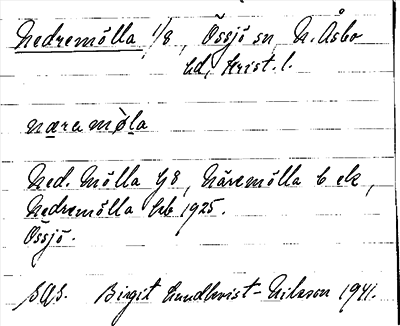 Nedremölla 1/8, Össjö sn, N. Åsbo
hd, Krist. l.
næra mø̀la
Ned. Mölla G8, Näremölla C ek,
Nedremölla hb 1925.
Össjö.
SAS. Birgit Lundkvist-Nilsson 1941.